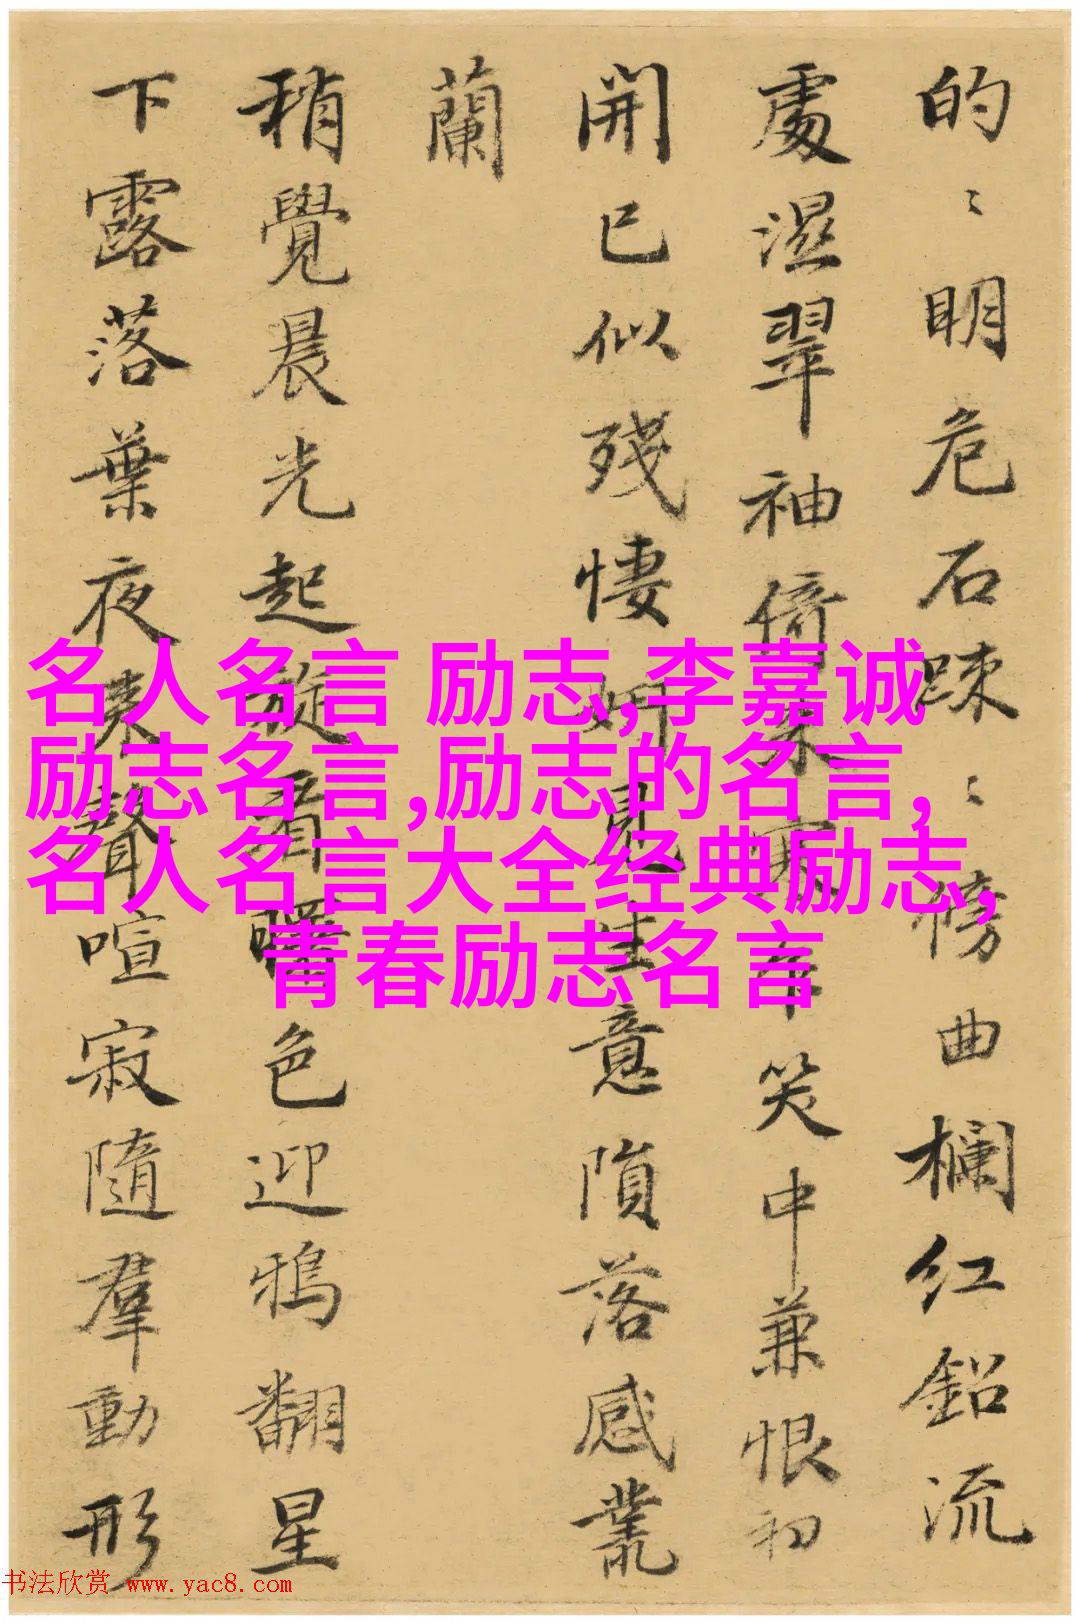 的〻明危石踈〻傍曲欄红鉛流
處濕翠袖倚来寒笑中兼恨初
開已似殘悽妍見生意隕落感叢
蘭
稍覺晨光起旋看曙色迎鴉翻星
下露落葉夜来聲喧寂隨羣動形
名人名言 励志,李嘉诚
励志名言,励志的名言,
名人名言大全经典励志,
青春励志名言
书法欣赏 www.yac8.com